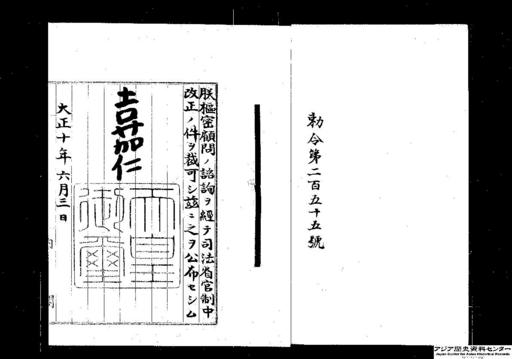 勅令第二百五十五號
朕樞密顧問ノ諮詢ヲ經テ司法省官制中
改正ノ件ヲ裁可シ茲ニ之ヲ公布セシム
嘉仁
天皇
御璽
大正十年六月三日
アジア歴史資料センター
Japan Center for Asian Historical Records